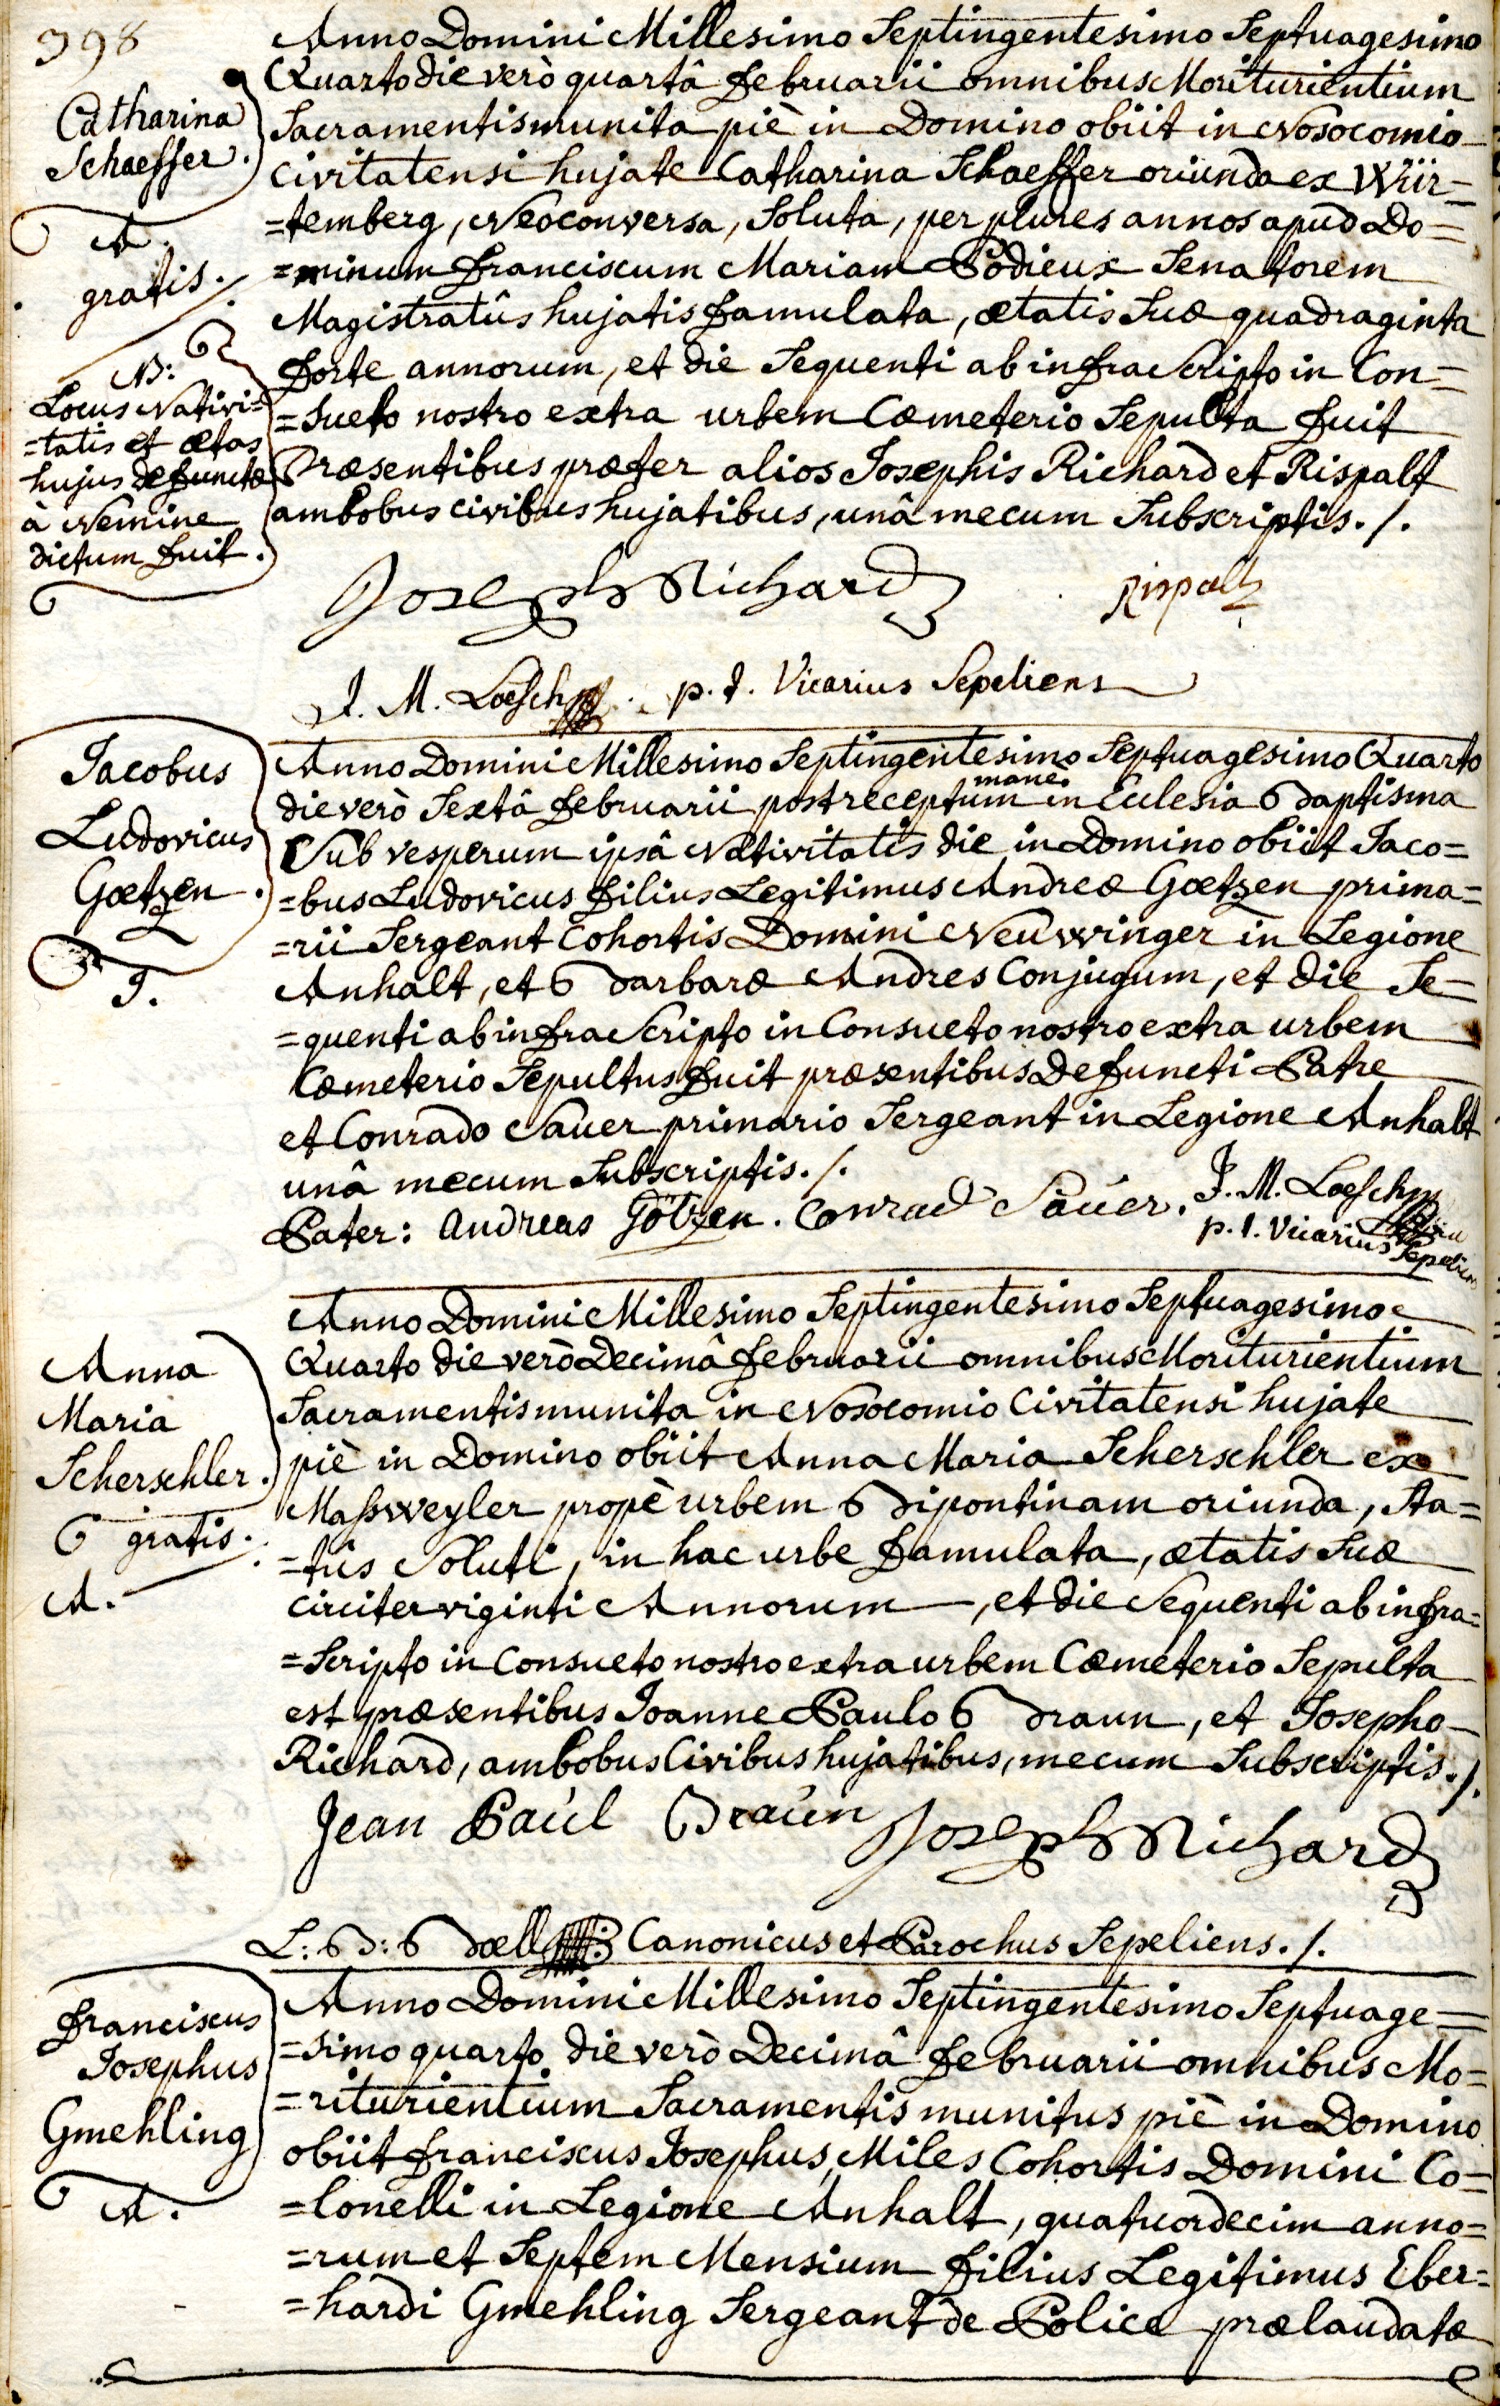 398
Catharina
Schaeffer.
A.
gratis.
NB:
Locus Nativi=
=tatis et ætas
hujus defunctæ
à Nemine
dictum fuit.
Anno Domini Millesimo Septingentesimo Septuagesimo
Quarto die verò quartâ februarii omnibus Moriturientium
Sacramentis munita piè in Domino obiit in Nosocomio
Civitatensi hujate Catharina Schaeffer oriunda ex Wür=
=temberg, Neoconversa, Soluta, per plures annos apud Do=
=minum franciscum Mariam Bodieux Senatorem
Magistratûs hujatis famulata, ætatis suæ quadraginta
forte annorum, et die Sequenti ab infra Scripto in Con=
=sueto nostro extra urbem Cœmeterio Sepulta fuit
Præsentibus præter alios Josephis Richard et Rispalt
ambobus civibus hujatibus, unâ mecum Subscriptis./.
Joseph Richard
Rispalt
J. M. Loesch p. t. Vicarius Sepeliens
Jacobus
Ludovicus
Goetzen.
J.
Anno Domini Millesimo Septingentesimo Septuagesimo Quarto
die verò Sextâ februarii post receptum mane in Ecclesia Baptisma
Sub vesperum ipsâ Nativitatis die in Domino obiit Jaco=
=bus Ludovicus filius Legitimus Andreæ Goetzen prima=
=rii Sergeant Cohortis Domini Neuwinger in Legione
Anhalt, et Barbaræ Andres Conjugum, et die Se=
=quenti ab infra Scripto in Consueto nostro extra urbem
Cœmeterio Sepultus fuit præsentibus Defuncti Patre
et Conrado Sauer primario Sergeant in Legione Anhalt
unâ mecum Subscriptis./.
Pater: Andreas Götzen. Conrad Sauer.
J. M. Loesch
p. t. Vicarius Sepeliens
Anna
Maria
Scherschler.
gratis.
A.
Anno Domini Millesimo Septingentesimo Septuagesimo
Quarto die verò Decimâ februarii omnibus Moriturientium
Sacramentis munita in Nosocomio Civitatensi hujate
piè in Domino obiit Anna Maria Scherschler ex
Maßweyler propè urbem Bipontinam oriunda, Sta=
=tûs Soluti, in hac urbe famulata, ætatis suæ
circiter viginti Annorum, et die Sequenti ab infra=
=Scripto in Consueto nostro extra urbem Cœmeterio Sepulta
est præsentibus Joanne Paulo Braun, et Josepho
Richard, ambobus Civibus hujatibus, mecum Subscriptis./.
Jean Paul Braun Joseph Richard
L: B: Boell Canonicus et Parochus Sepeliens./.
franciscus
Josephus
Gmehling
A.
Anno Domini Millesimo Septingentesimo Septuage=
=simo quarto die verò Decimâ februarii omnibus Mo=
=riturientium Sacramentis munitus piè in Domino
obiit franciscus Josephus Miles Cohortis Domini Co=
=lonelli in Legione Anhalt, quatuordecim anno=
=rum et Septem Mensium filius Legitimus Eber=
=hardi Gmehling Sergeant de Police prælaudatæ